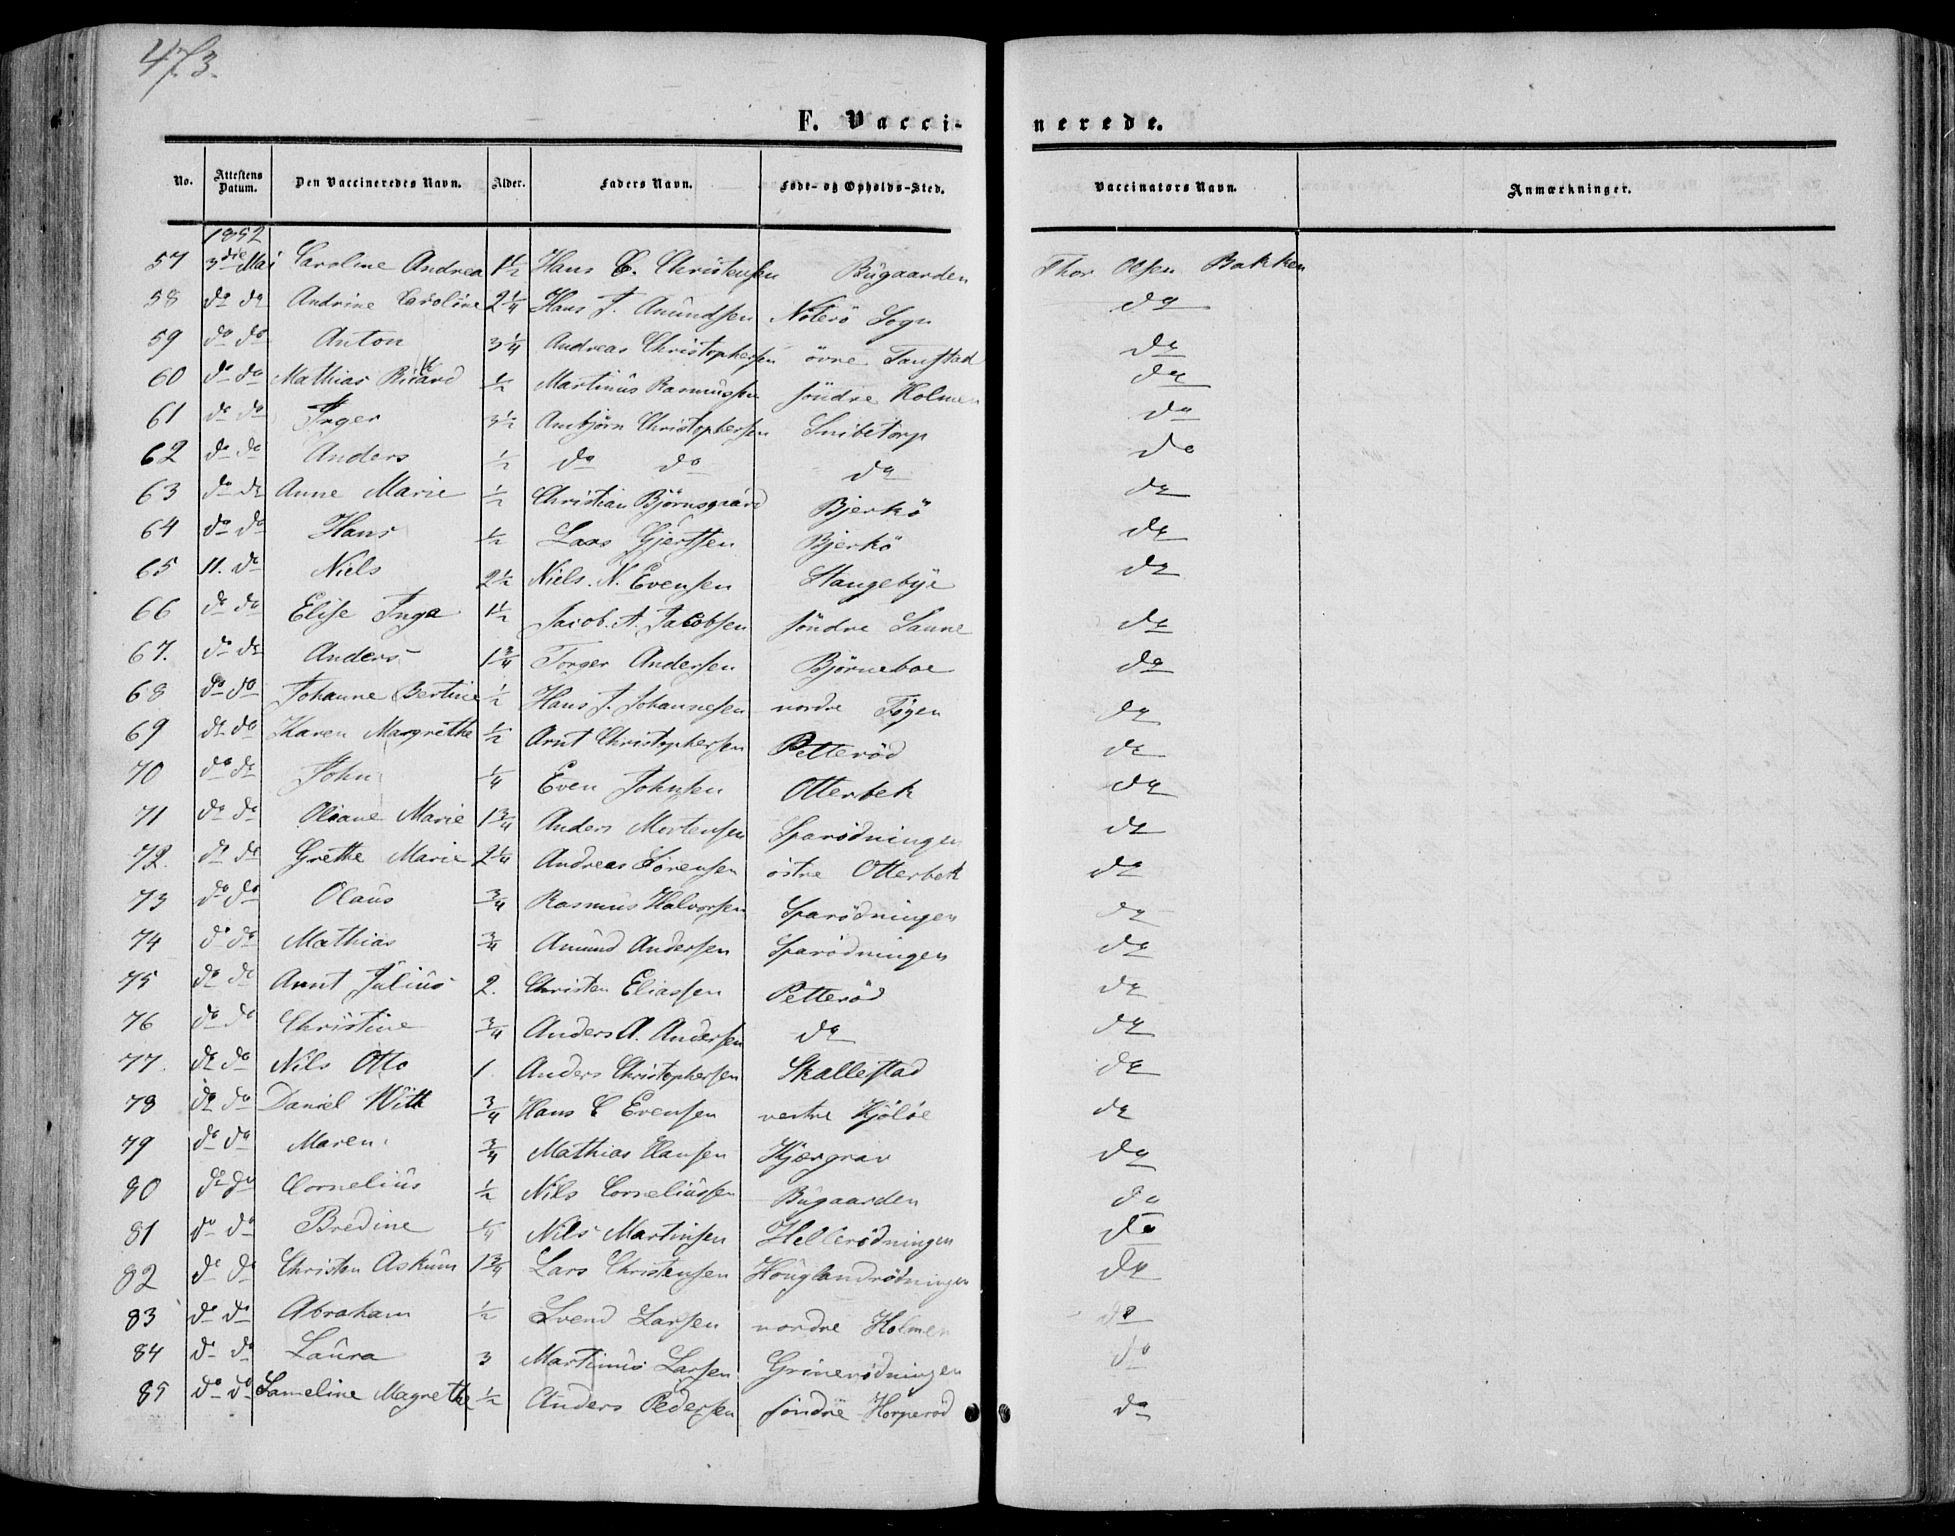 473.
F. Vaccinerede.
No. Attestens Datum. Den Vaccineredes Navn. Alder. Faders Navn. Føde- og Opholds-Sted. Vaccinators Navn. Anmærkninger.
1852
57 3die Mai Caroline Andrea 1½ Hans C. Christensen Bügaarden Thor Olsen Bakken
58 do do Andrine Caroline 2¼ Hans J. Amundsen Nøterö Sogn do
59 do do Anton 3¼ Andreas Christophersen övre do
60 do do Mathias Rikard ½ Martinüs Rasmussen söndre Holmen do
61 do do Inger 3½ Anbjörn Christophersen Snibetorp do
62 do do Anders ½ do do do do
63 do do Anne Marie ½ Christian Björnsgaard Bjerkö do
64 do do Hans ½ Lars Gjertsen Bjerkö do
65 11. do Niels 2½ Niels. N. Evensen Stangebÿe do
66 do do Elise Inga 1½ Jacob. A. Jacobsen söndre do
67. do do Anders 1¾ Torger Andersen Björneboe do
68 do do Johanne Bertine ½ Hans J. Johannesen nordre Föÿen do
69 do do Karen Margrethe ½ Arnt Christophersen Petteröd do
70 do do John ¼ Even Johnsen Otterbek do
71 do do Oleane Marie 1¾ Anders Mortensen Sparödningen do
72. do do Grethe Marie 2¼ Andreas Sörensen östre Otterbek do
73 do do Olaüs ¾ Rasmus Halvorsen Sparödningen do
74 do do Mathias ¾ Amünd Andersen Sparödningen do
75 do do Arnt Juliüs 2. Christen Eliassen Petteröd do
76 do do Christine ¾ Anders A. Andersen do do
77. do do Nils Otto 1. Anders Christophersen Skallestad do
78 do do Daniel Witt ¾ Hans C Evensen vestre Kjölöe do
79 do do Maren ¾ Mathias Hansen Kjærgrav do
80 do do Corneliüs ½ Nils Corneliüssen Bügaarden do
81 do do Bredine ¼ Nils Martinsen Hellerödningen do
82 do do Christen Asküm 1¾ Lars Christensen Houglandrödningen do
83 do do Abraham ½ Svend Larsen nordre Holmen do
84 do do Laüra 3 Martinüs Larsen Grinerödningen do
85 do do Lameline Magrethe ½ Anders Pedersen söndre Horperöd do